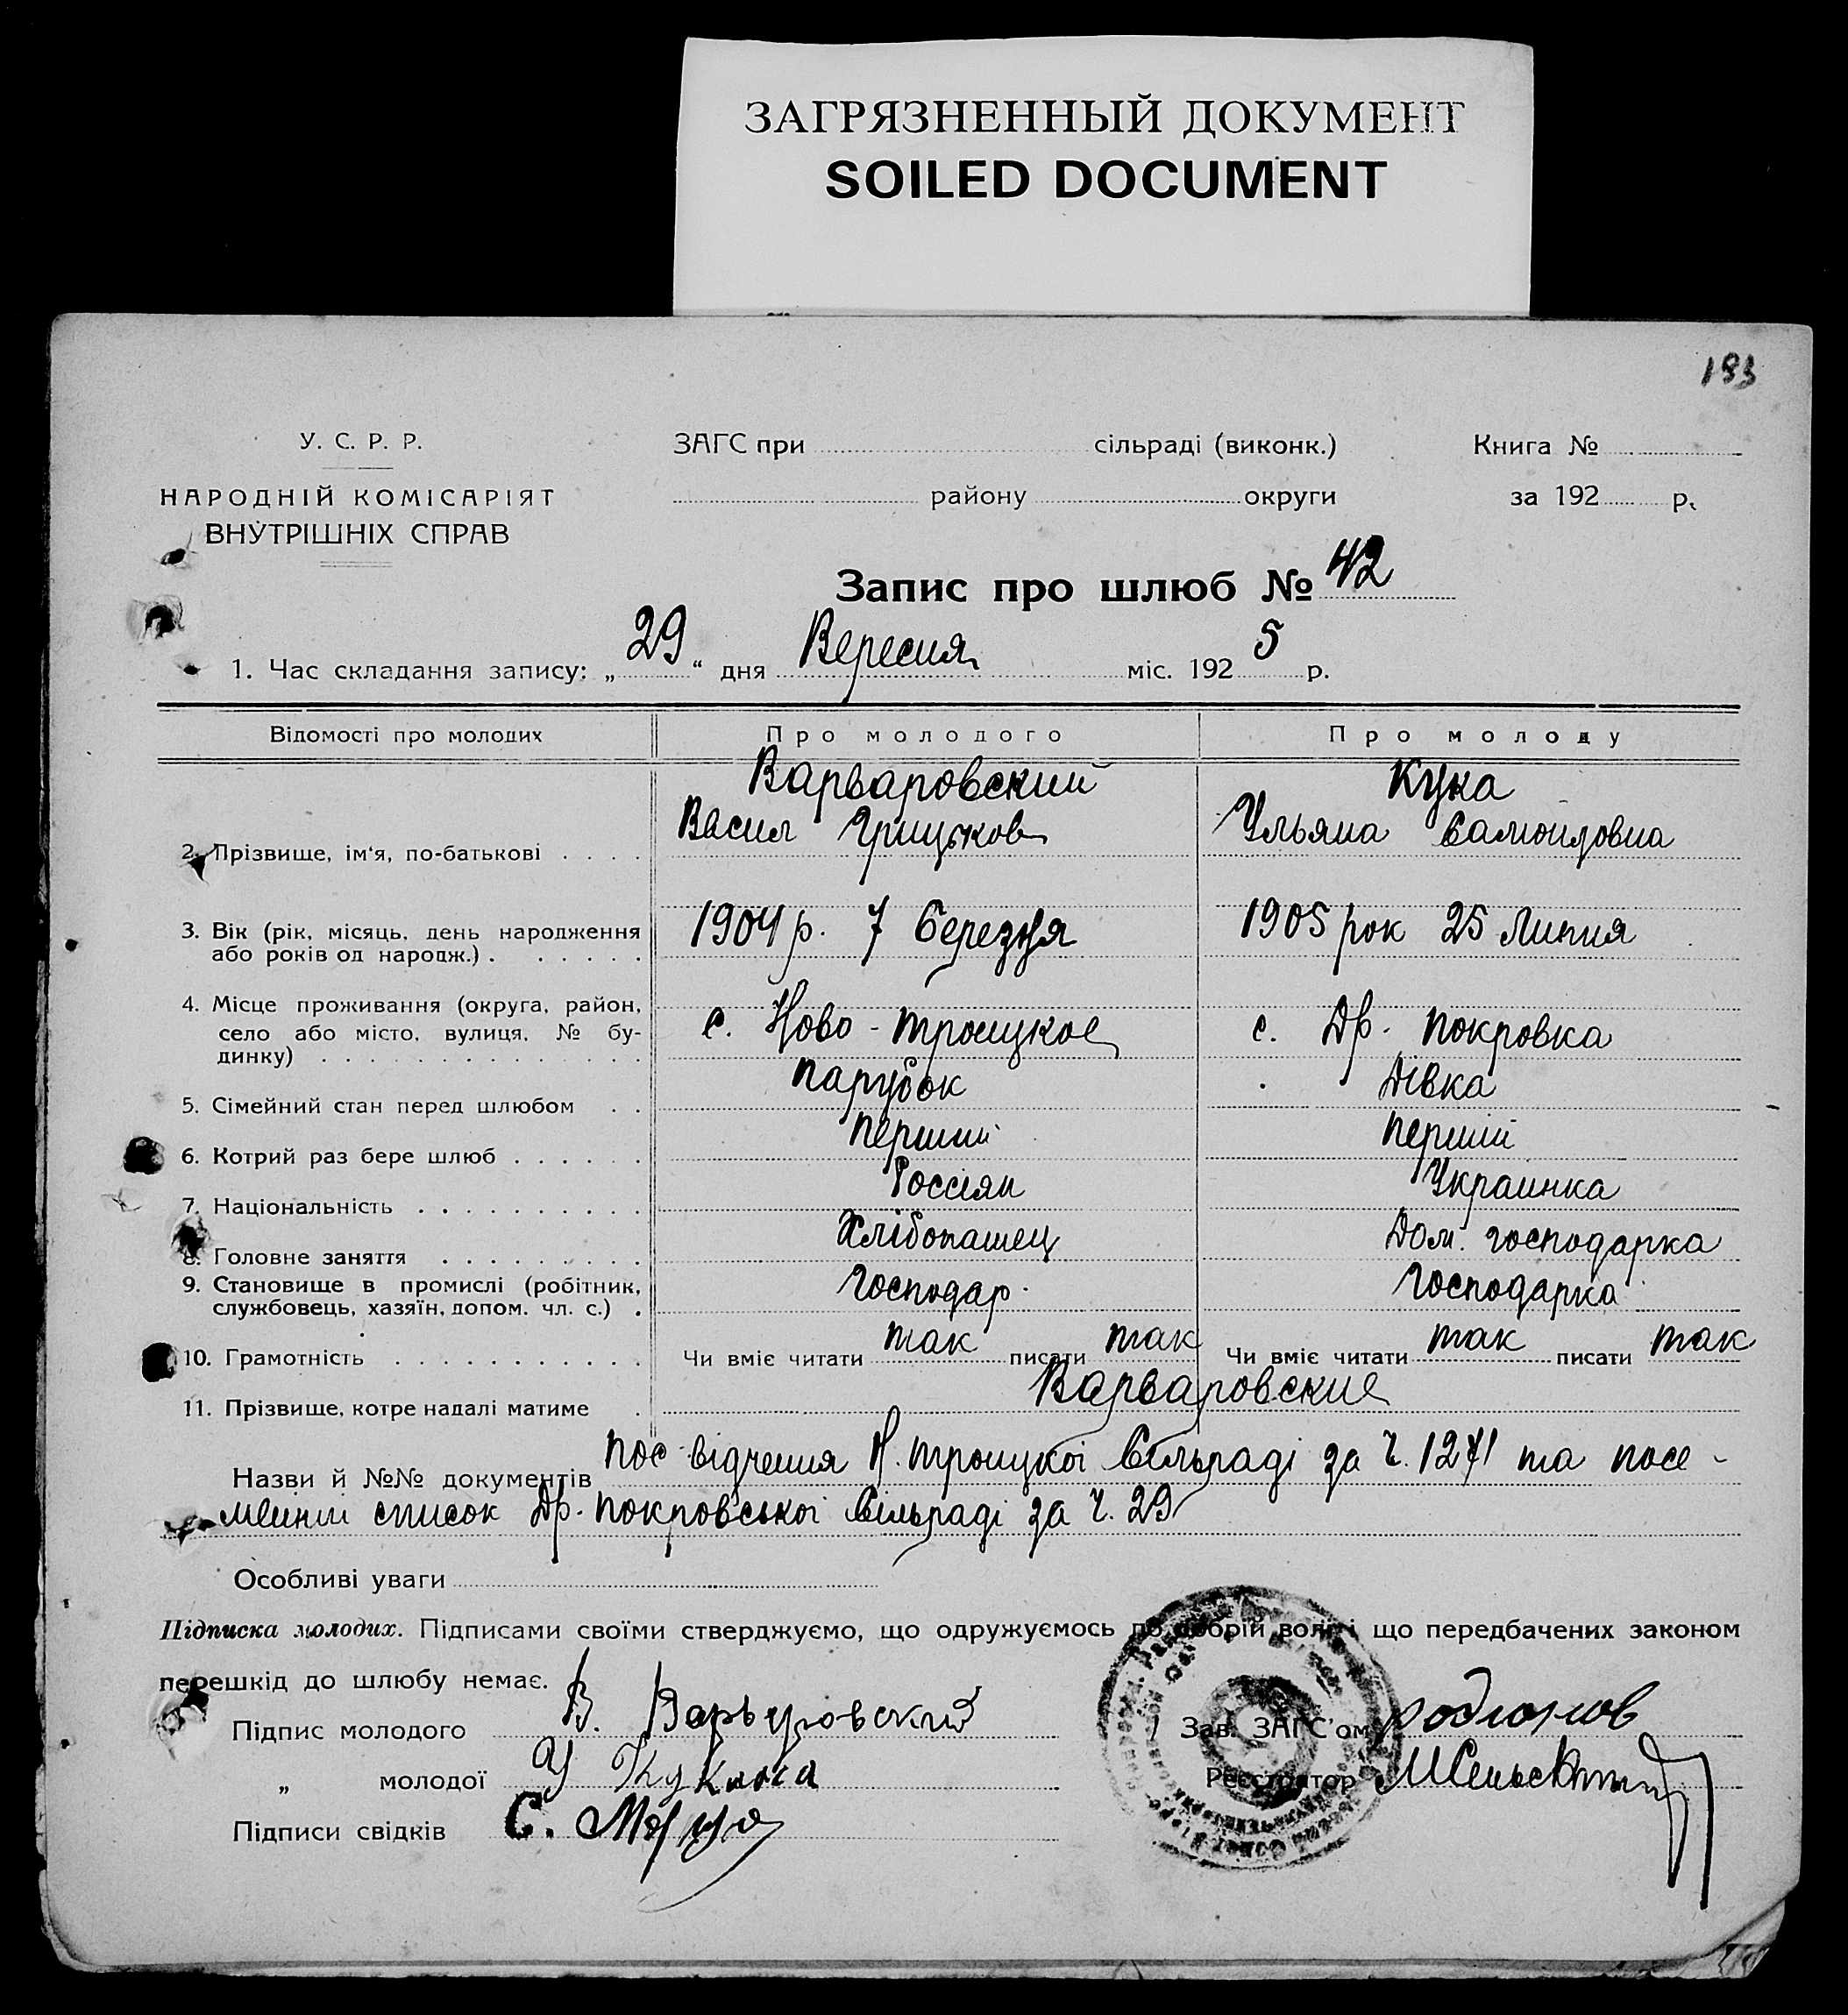 ЗАГРЯЗНЕННЫЙ ДОКУМЕНТ
SOILED DOCUMENT
193
У. С. Р. Р.
НАРОДНІЙ КОМІСАРІЯТ
ВНУТРІШНІХ СПРАВ
ЗАГС при сільраді (виконк.)
району округи
Книга №
за 192 р.
Запис про шлюб № 42
1. Час складання запису: „29“ дня Вересня міс. 1925 р.
Відомості про молодих Про молодого Про молоду
Варваровский Кука
Васил Грицьков Ульяна Самойловна
2. Прізвище, ім'я, по-батькові
3. Вік (рік, місяць, день народження 1904 р. 7 березня 1905 рок 25 Липня
або років од народж.)
4. Місце проживання (округа, район, с. Ново-троицкое с. Др. Покровка
село або місто, вулиця, № бу-
динку)
5. Сімейний стан перед шлюбом парубок Дівка
6. Котрий раз бере шлюб перший перший
7. Національність Россіян Украинка
8. Головне заняття Хлібопашец Дом. господарка
9. Становище в промислі (робітник, господар господарка
службовець, хазяїн, допом. чл. с.)
10. Грамотність Чи вміє читати так писати так Чи вміє читати так писати так
11. Прізвище, котре надалі матиме Варваровские
Назви й №№ документів посвідчения Н. троицкої сільраді за ч. 1271 та посе-
мейний список Др. покровської сільраді за ч. 29
Особливі уваги
Підписка молодих. Підписами своїми стверджуємо, що одружуємось по добрій волі і що передбачених законом
перешкід до шлюбу немає.
Підпис молодого В. Варваровский
„ молодої У
Підписи свідків С.
Зав. ЗАГС'ом Родионов
Реєстратор